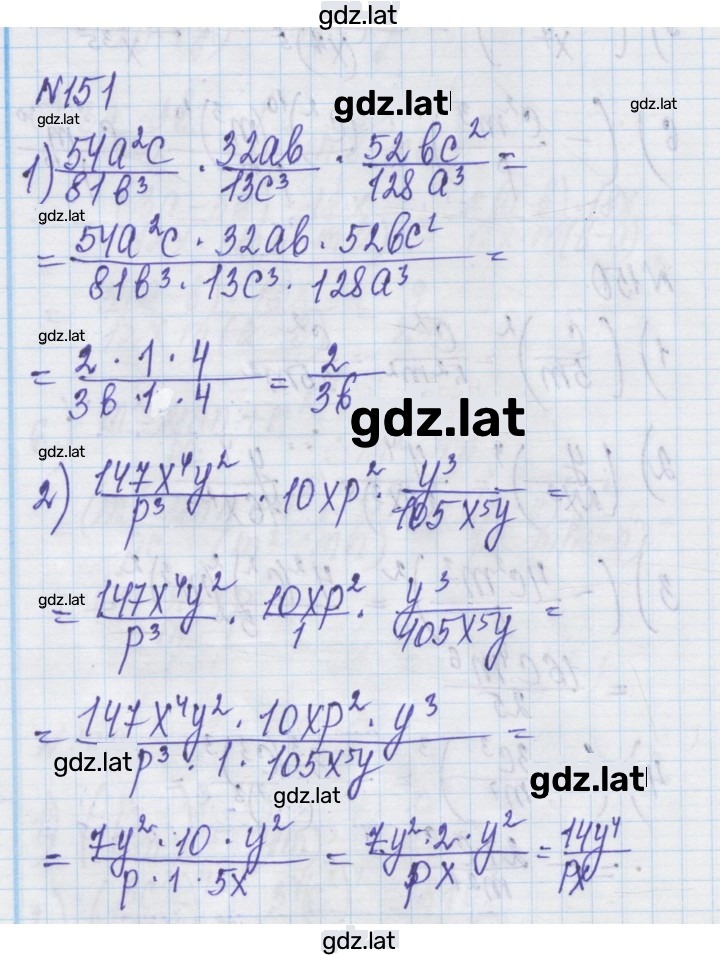 gdz.lat
№151
gdz.lat gdz.lat gdz.lat
1) 54a²c/81b³ · 32ab/13c³ · 52bc²/128a³ =
gdz.lat
= 54a²c · 32ab · 52bc²/81b³ · 13c³ · 128a³ =
gdz.lat
= 2 · 1 · 4/3b · 1 · 4 = 2/3b
gdz.lat
gdz.lat
2) 147x⁴y²/p³ · 10xp² · y³/105x⁵y =
gdz.lat
= 147x⁴y²/p³ · 10xp²/1 · y³/105x⁵y =
= 147x⁴y² · 10xp² · y³/p³ · 1 · 105x⁵y =
gdz.lat gdz.lat gdz.lat
= 7y² · 10 · y²/p · 1 · 5x = 7y² · 2 · y²/px = 14y⁴/px
gdz.lat